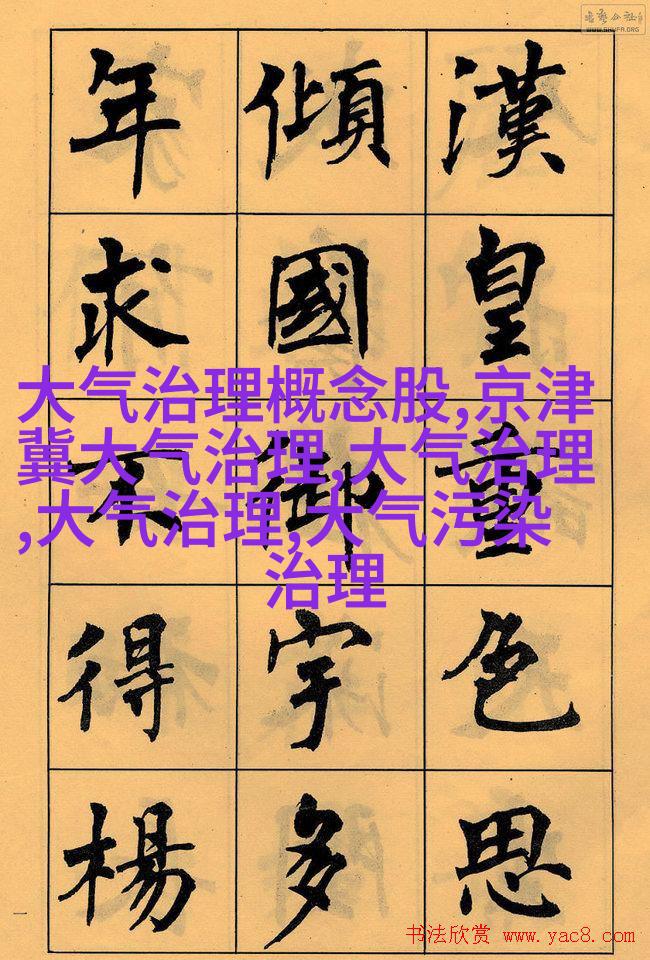 書藝公社
WWW.SHUFA.ORG
漢皇重色思
傾國御宇多
年求不得楊
大气治理概念股,京津
冀大气治理,大气治理
,大气治理,大气污染
治理
一
书法欣赏 www.yac8.com